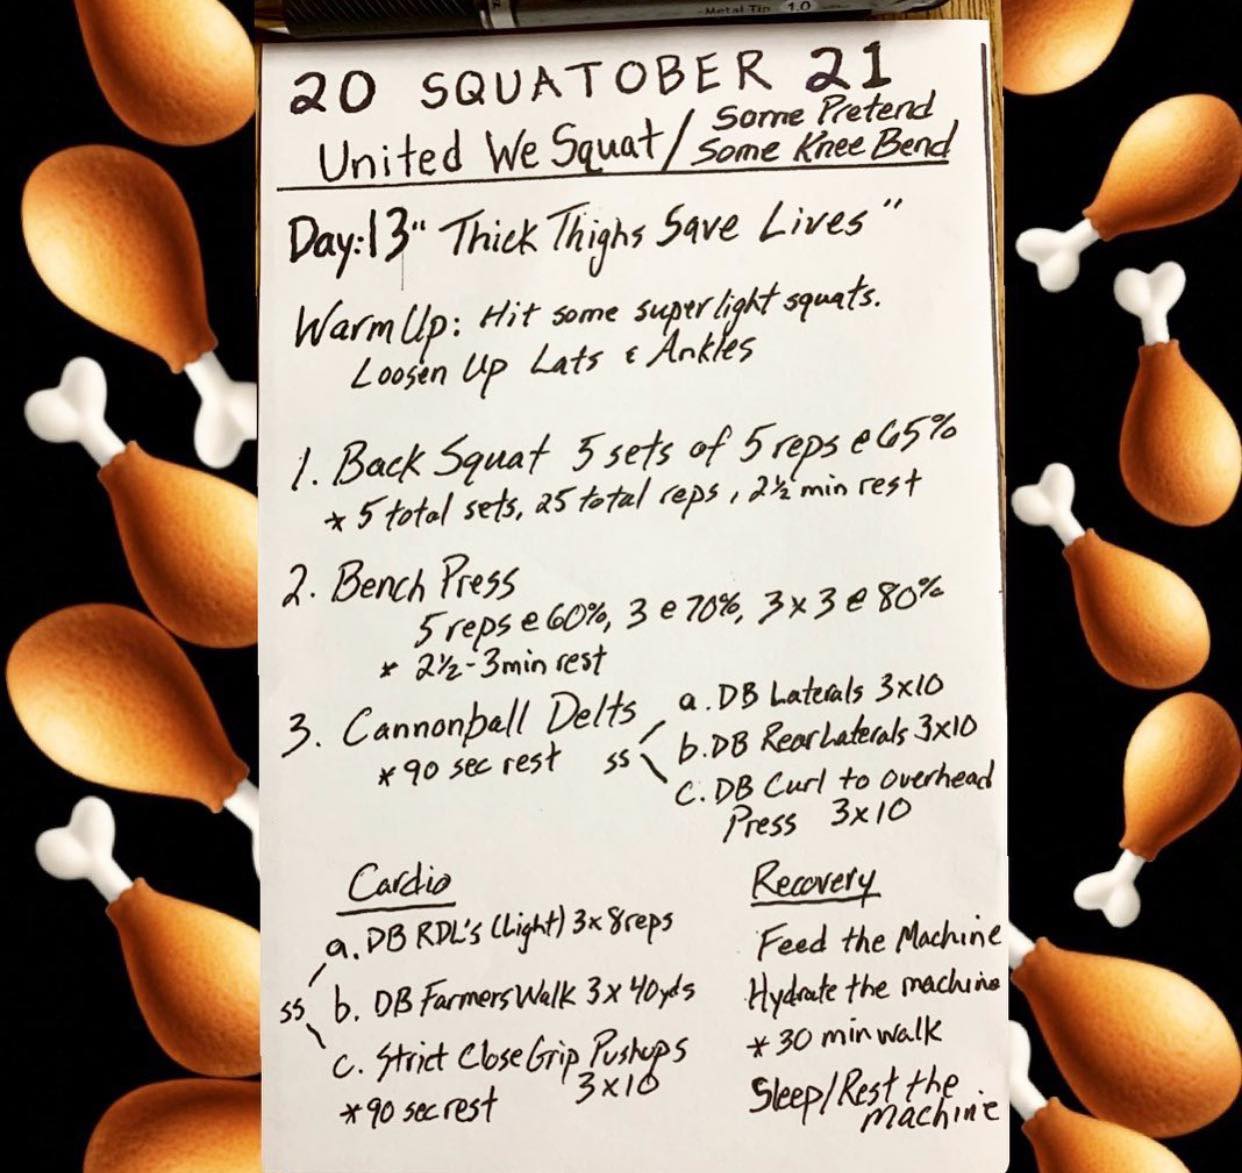 Metal Tip 1.0
20 SQUATOBER 21
United We Squat/ Some Pretend
Some Knee Bend
Day:13 "Thick Thighs Save Lives"
Warm Up: Hit some super light squats.
Loosen Up Lats & Ankles
1. Back Squat 5 sets of 5 reps @ 65%
* 5 total sets, 25 total reps, 2½ min rest
2. Bench Press
5 reps @ 60%, 3 @ 70%, 3 x 3 @ 80%
* 2½-3 min rest
3. Cannonball Delts
* 90 sec rest
ss
a. DB Laterals 3x10
b. DB Rear Laterals 3x10
c. DB Curl to Overhead
Press 3x10
Cardio
a. DB RDL's (Light) 3x8 reps
ss
b. DB Farmers Walk 3 x 40yds
c. Strict Close Grip Pushups
3x10
* 90 sec rest
Recovery
Feed the Machine
Hydrate the machine
* 30 min walk
Sleep/Rest the
machine